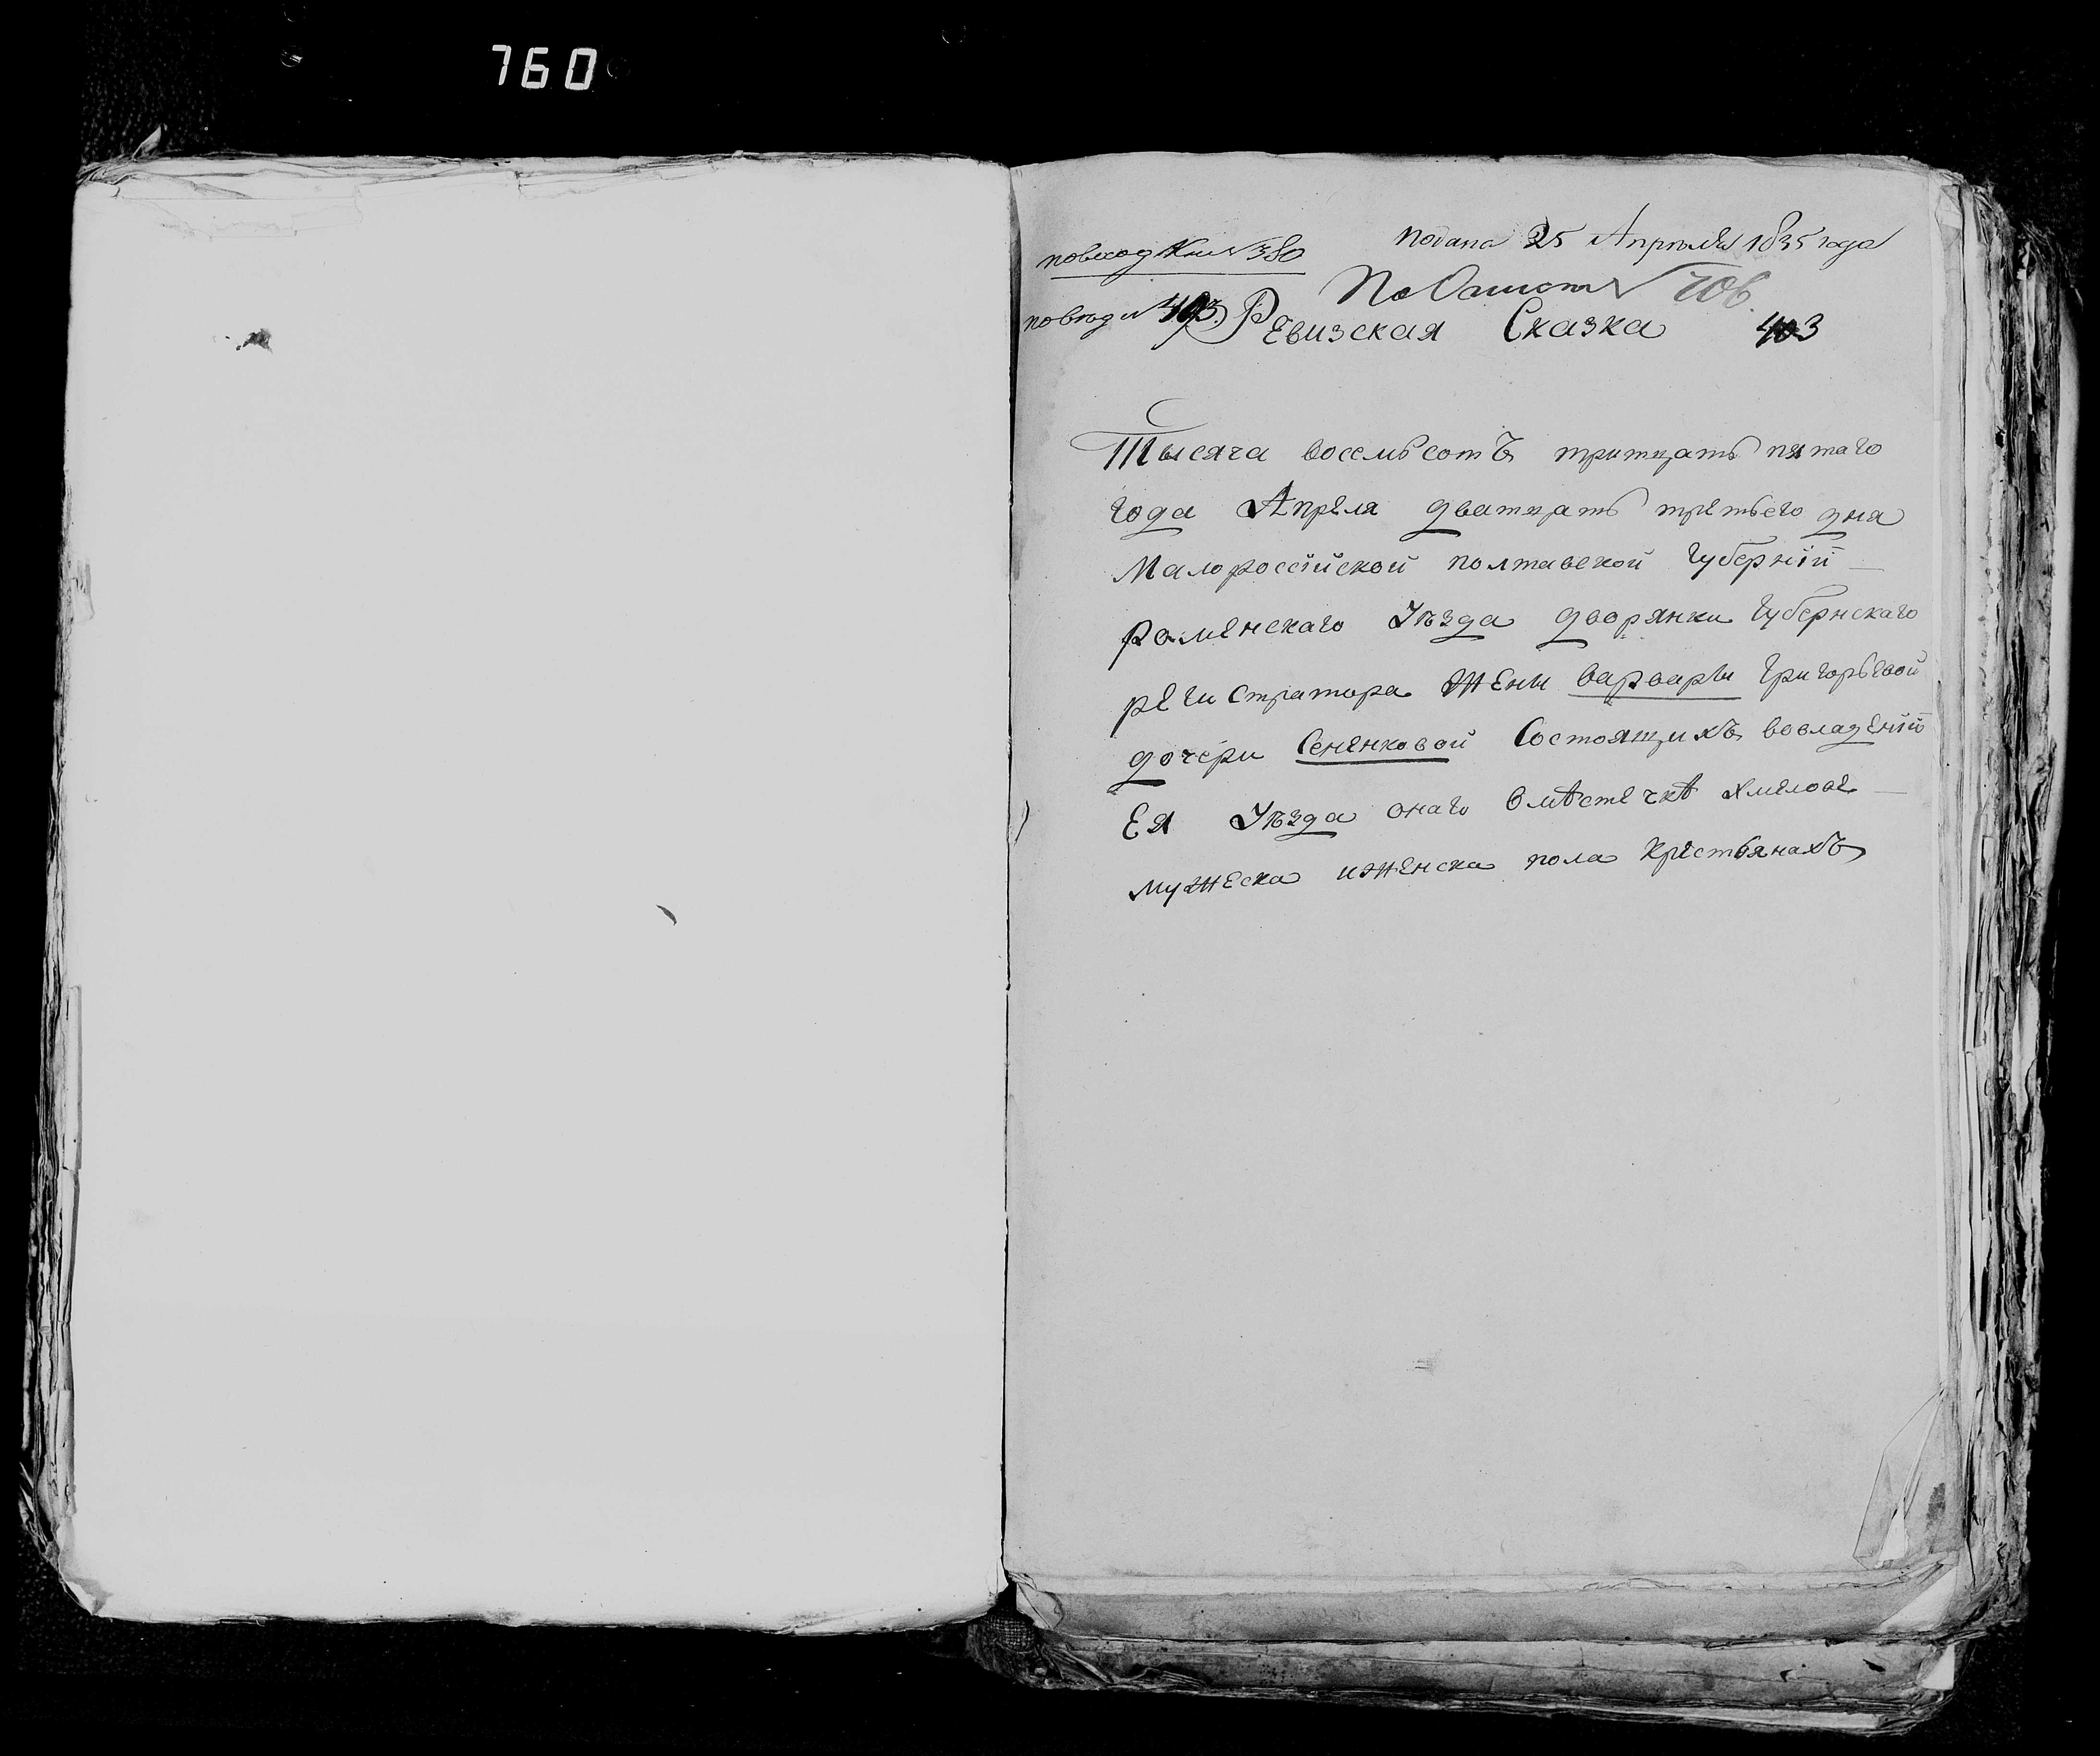 760
подана 25 Апреля 1835 года
повход Кни № 380
По Опист № 706
повъд № 403.
Ревизская Сказка 403
Тысяча восемьсотъ тритцать пятаго
года Апреля дватцать третьего дня
Малороссійской полтавской губерніи
Роменскаго Уѣзда дворянки губернскаго
регистратора жены варвары григорьевой
дочери Сененковой Состоящихъ вовладеніи
Ея Уѣзда онаго вмѣстечкѣ хмелове
мужеска иженска пола крестьянахъ